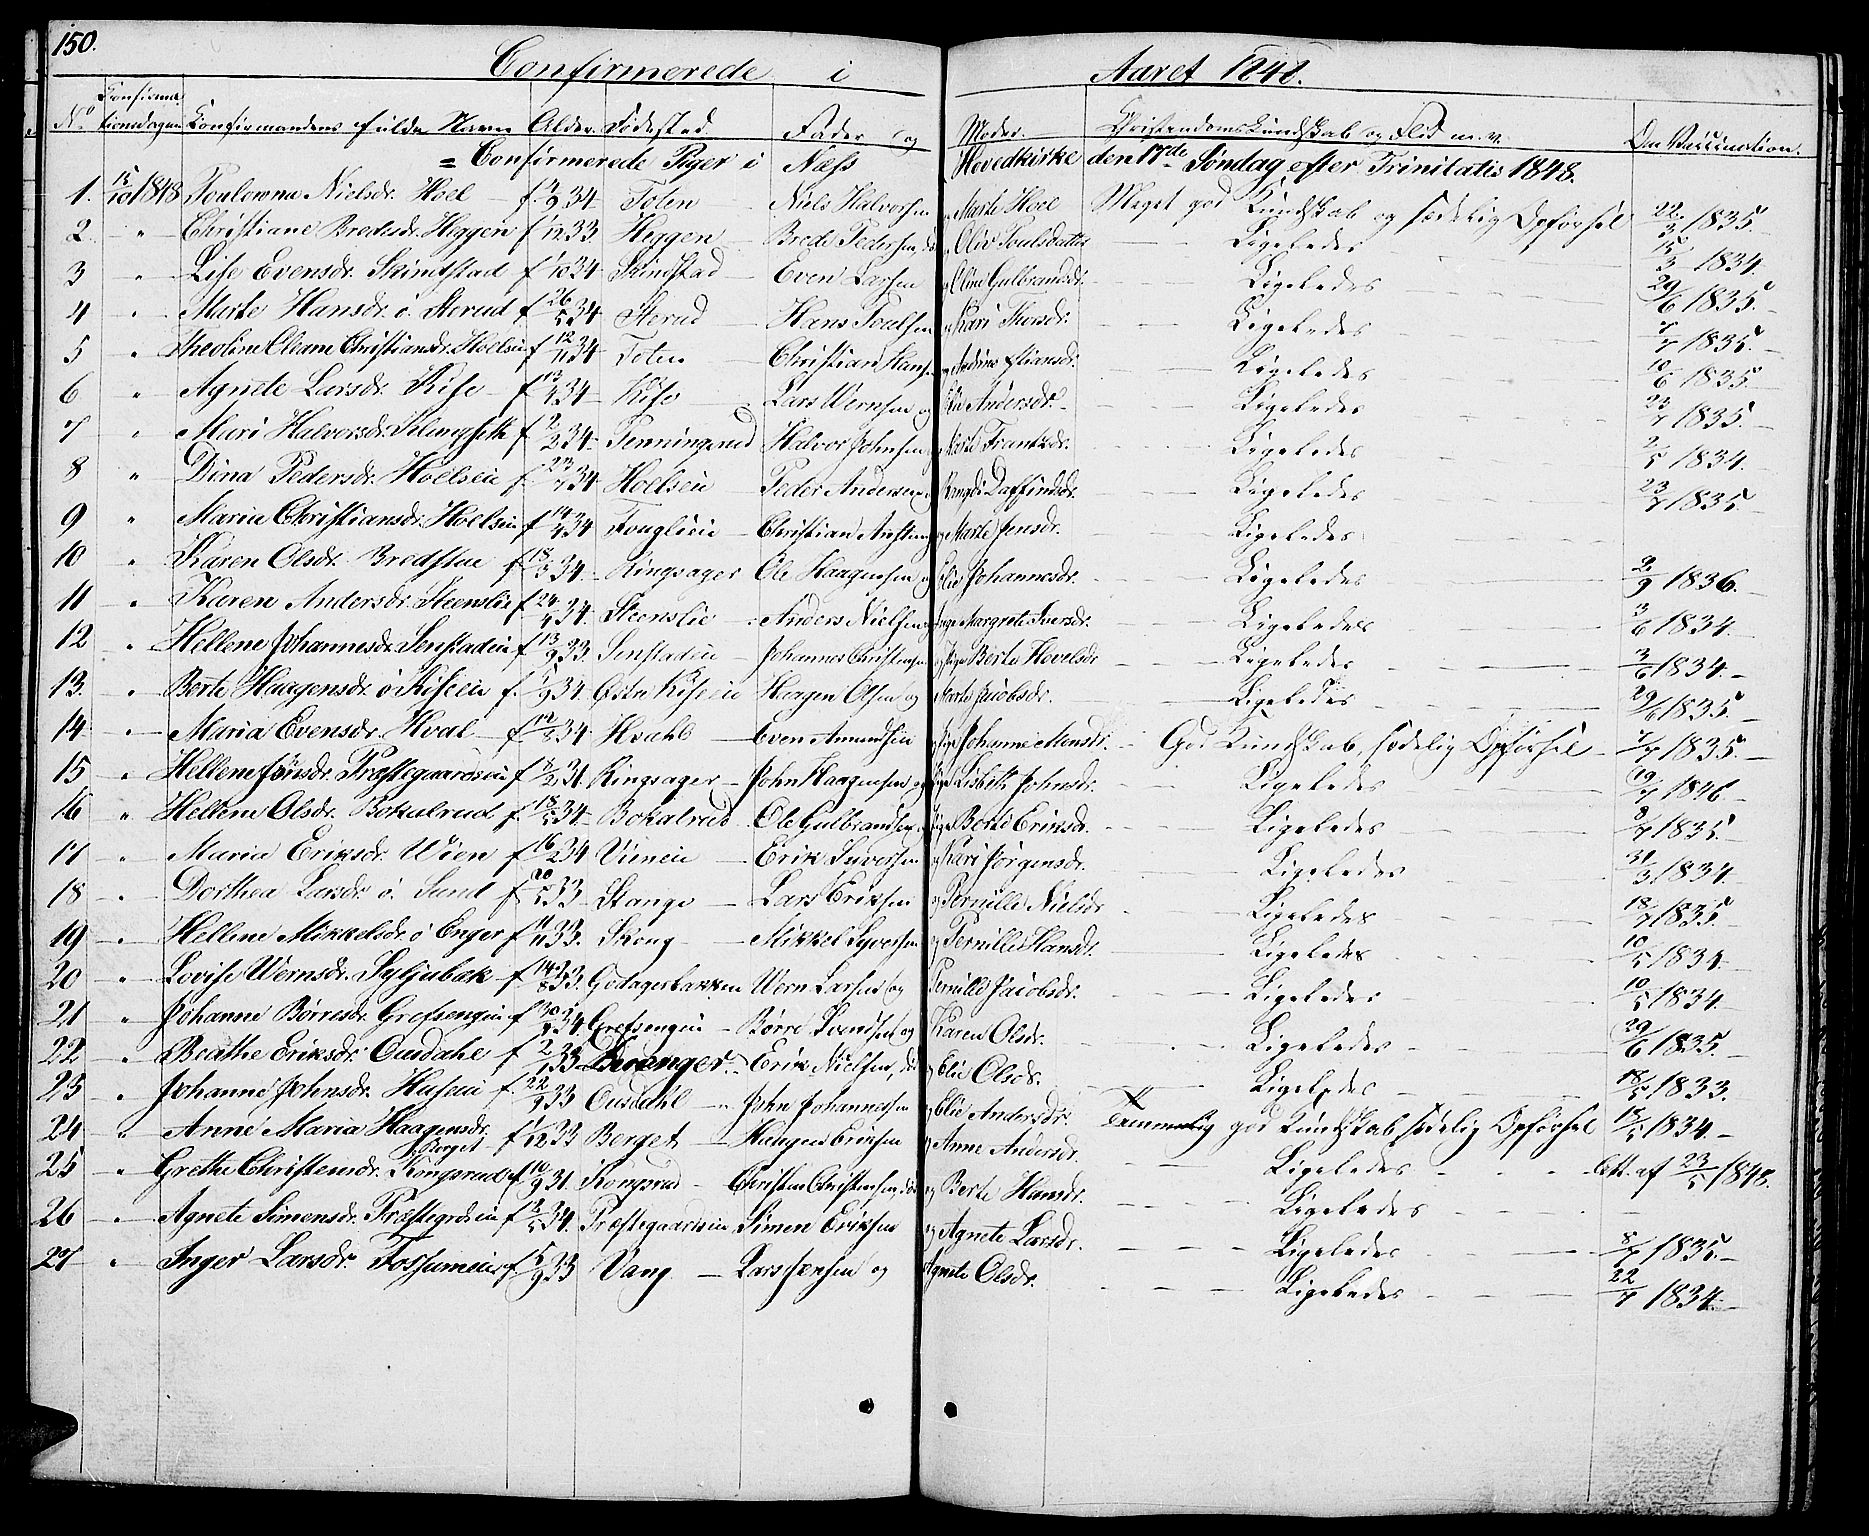 150.
Confirmerede i Aaret 1848.
No Konfirmationsdagen Konfirmandens fulde Navn Alder. Fødested. Fader og Moder. Christendoms Kundskab og Flid m. v. Om Vaccination.
= Confirmerede Piger i Næss Hovedkirke den 17de Søndag efter Trinitatis 1848.
1. 15/10 1848 Poulowna Nielsdr. Hoel f. 4/9 34 Toten Niels Halvorsen og Marte Hoel Meget god Kundskab og sædelig Opførsel 22/3 1835.
2 " Christiane Bredesdr. Heggen f 33. Heggen Brede Pedersen Oliv Poulsdatter Ligeledes 15/3 1834.
3 " Lise Evensdr. Skindstad f 34 Skindstad Even Larsen og Eline Gulbrandsdr. Ligeledes 29/6 1835.
4 " Marte Hansdr. ø. Sterud f 26/5 34 Sterud Hans Poulsen og Kari Thorsdr. Ligeledes 7/7 1835.
5 " Theoline Oleane Christiansdr. Hoelsei f 12/11 34 Toten Christian Hansen Ligeledes 10/6 1835
6 " Agnete Larsdr. Rise f 13/4 34 Rise Lars Wernsen og Andersdr. Ligeledes 23/7 1835.
7 " Mari Halvorsdr. f 2/2 34 Penningsrud Halvor Johnsen og Marte Frantzdr. Ligeledes 2/5 1834.
8 " Dina Pedersdr. Hoelseie f. 23/7 34 Hoelseie Peder Andersen og Ragndi Daffindsdr. Ligeledes 23/7 1835.
9 " Marie Christiansdr. Hoelseie f 14/4 34 Fouglieie Christian og Marte Jensdr. Ligeledes
10 " Karen Olsdr. Bredstue f 18/3 34. Ringsager Ole Haagensen og Elie Johannesdr. Ligeledes 2/9 1836.
11 " Karen Andersdr. Steenslie f 24/4 34 Steenslie Anders Nielsen og Inger Margrete Iversdr. Ligeledes 3/6 1834.
12 " Hellene Johannesdr. Senstadeie f 13/9 33 Senstadeie Johannes Christensen og Berte Hovelsdr. Ligeledes 3/6 1834.
13. " Berte Haagensdr. ø Riseeie f. 1/9 34. Østre Riseeie Haagen Olsen og Marte Jacobsdr. Ligeledes 29/6 1835.
14 " Maria Evensdr. Hval f 14/2 34 Hvahl Even Amundsen og Johanne Monsdr. God Kundskab, sædelig Opførsel 7/7 1835.
15 " Hellene Jönsdr. Præstegaardseie f 8/2 31 Ringsager John Haagensen og Lisbeth Johnsdr. Ligeledes 19/7 1846.
16 " Hellene Olsdr. Bokalrud f. 18/5 34. Bokalrud Ole Gulbrandsen og Berte Eriksdr. Ligeledes 8/7 1835.
17 " Maria Eriksdr. Wien f 16/2 34 Vieneie Erik Syversen og Kari Jørgensdr. Ligeledes 31/3 1834.
18 " Dorthea Larsdr. ø. Sund f 20/5 33 Stange Lars Eriksen og Pernille Nielsdr Ligeledes 18/7 1835
19 " Hellene Mikkelsdr. ø Enger f 11/11 33. Skoug Mikkel Syversen og Pernille Hansdr. Ligeledes 10/5 1834
20 " Lovise Wernsdr. Syljubak f 14/8 33. Gedagerbakken Wern Larsen og Pernille Jacobsdr. Ligeledes 10/5 1834
21 " Johanne Børresdr. Grefsengeie f 30/7 34 Grefsengeie Børre Svendsen og Karen Olsdr. Ligeledes 29/6 1835.
22 " Beathe Eriksdr. Ousdahl f 2/1 33 Erik Nielsen, og Elie Olsdr. Ligeledes 18/5 1833.
23 " Johanne Johnsdr. Huseie f. 22/9 33 Ousdahl John Johannessen og Elie Andersdr. Temmelig god Kundskab sædelig Opførsel 13/5 1834
24 " Anne Maria Haagensdr. Berget f 33 Berget Haagen Eriksen og Anne Andersdr. Ligeledes Att. af 23/5 1848.
25 " Grethe Christensdr. Kongsrud f 10/9 31. Kongsrud Christen Christensen og Berte Hansdr. Ligeledes
26 " Agnete Simensdr. Præstegrdseie f 34. Præstegaardseie Simen Eriksen og Agnete Larsdr. Ligeledes 8/7 1835
27 " Inger Larsdr. Fossumeie f. 5/9 33 Vang Lars Jensen og Agnete Olsdr. Ligeledes 22/7 1834.